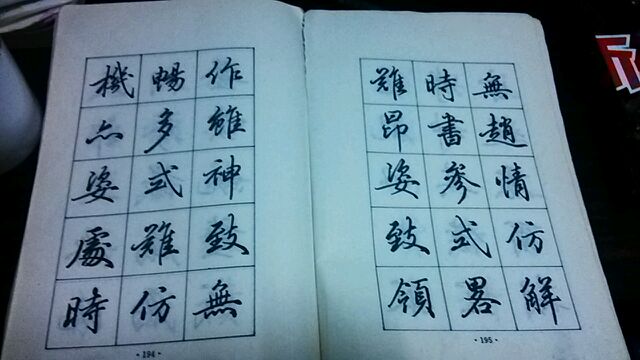 作雖神致無
暢多式難仿
機点姿處時
·194·
無趙情仿解
時書參式畧
難昂姿致領
·195·